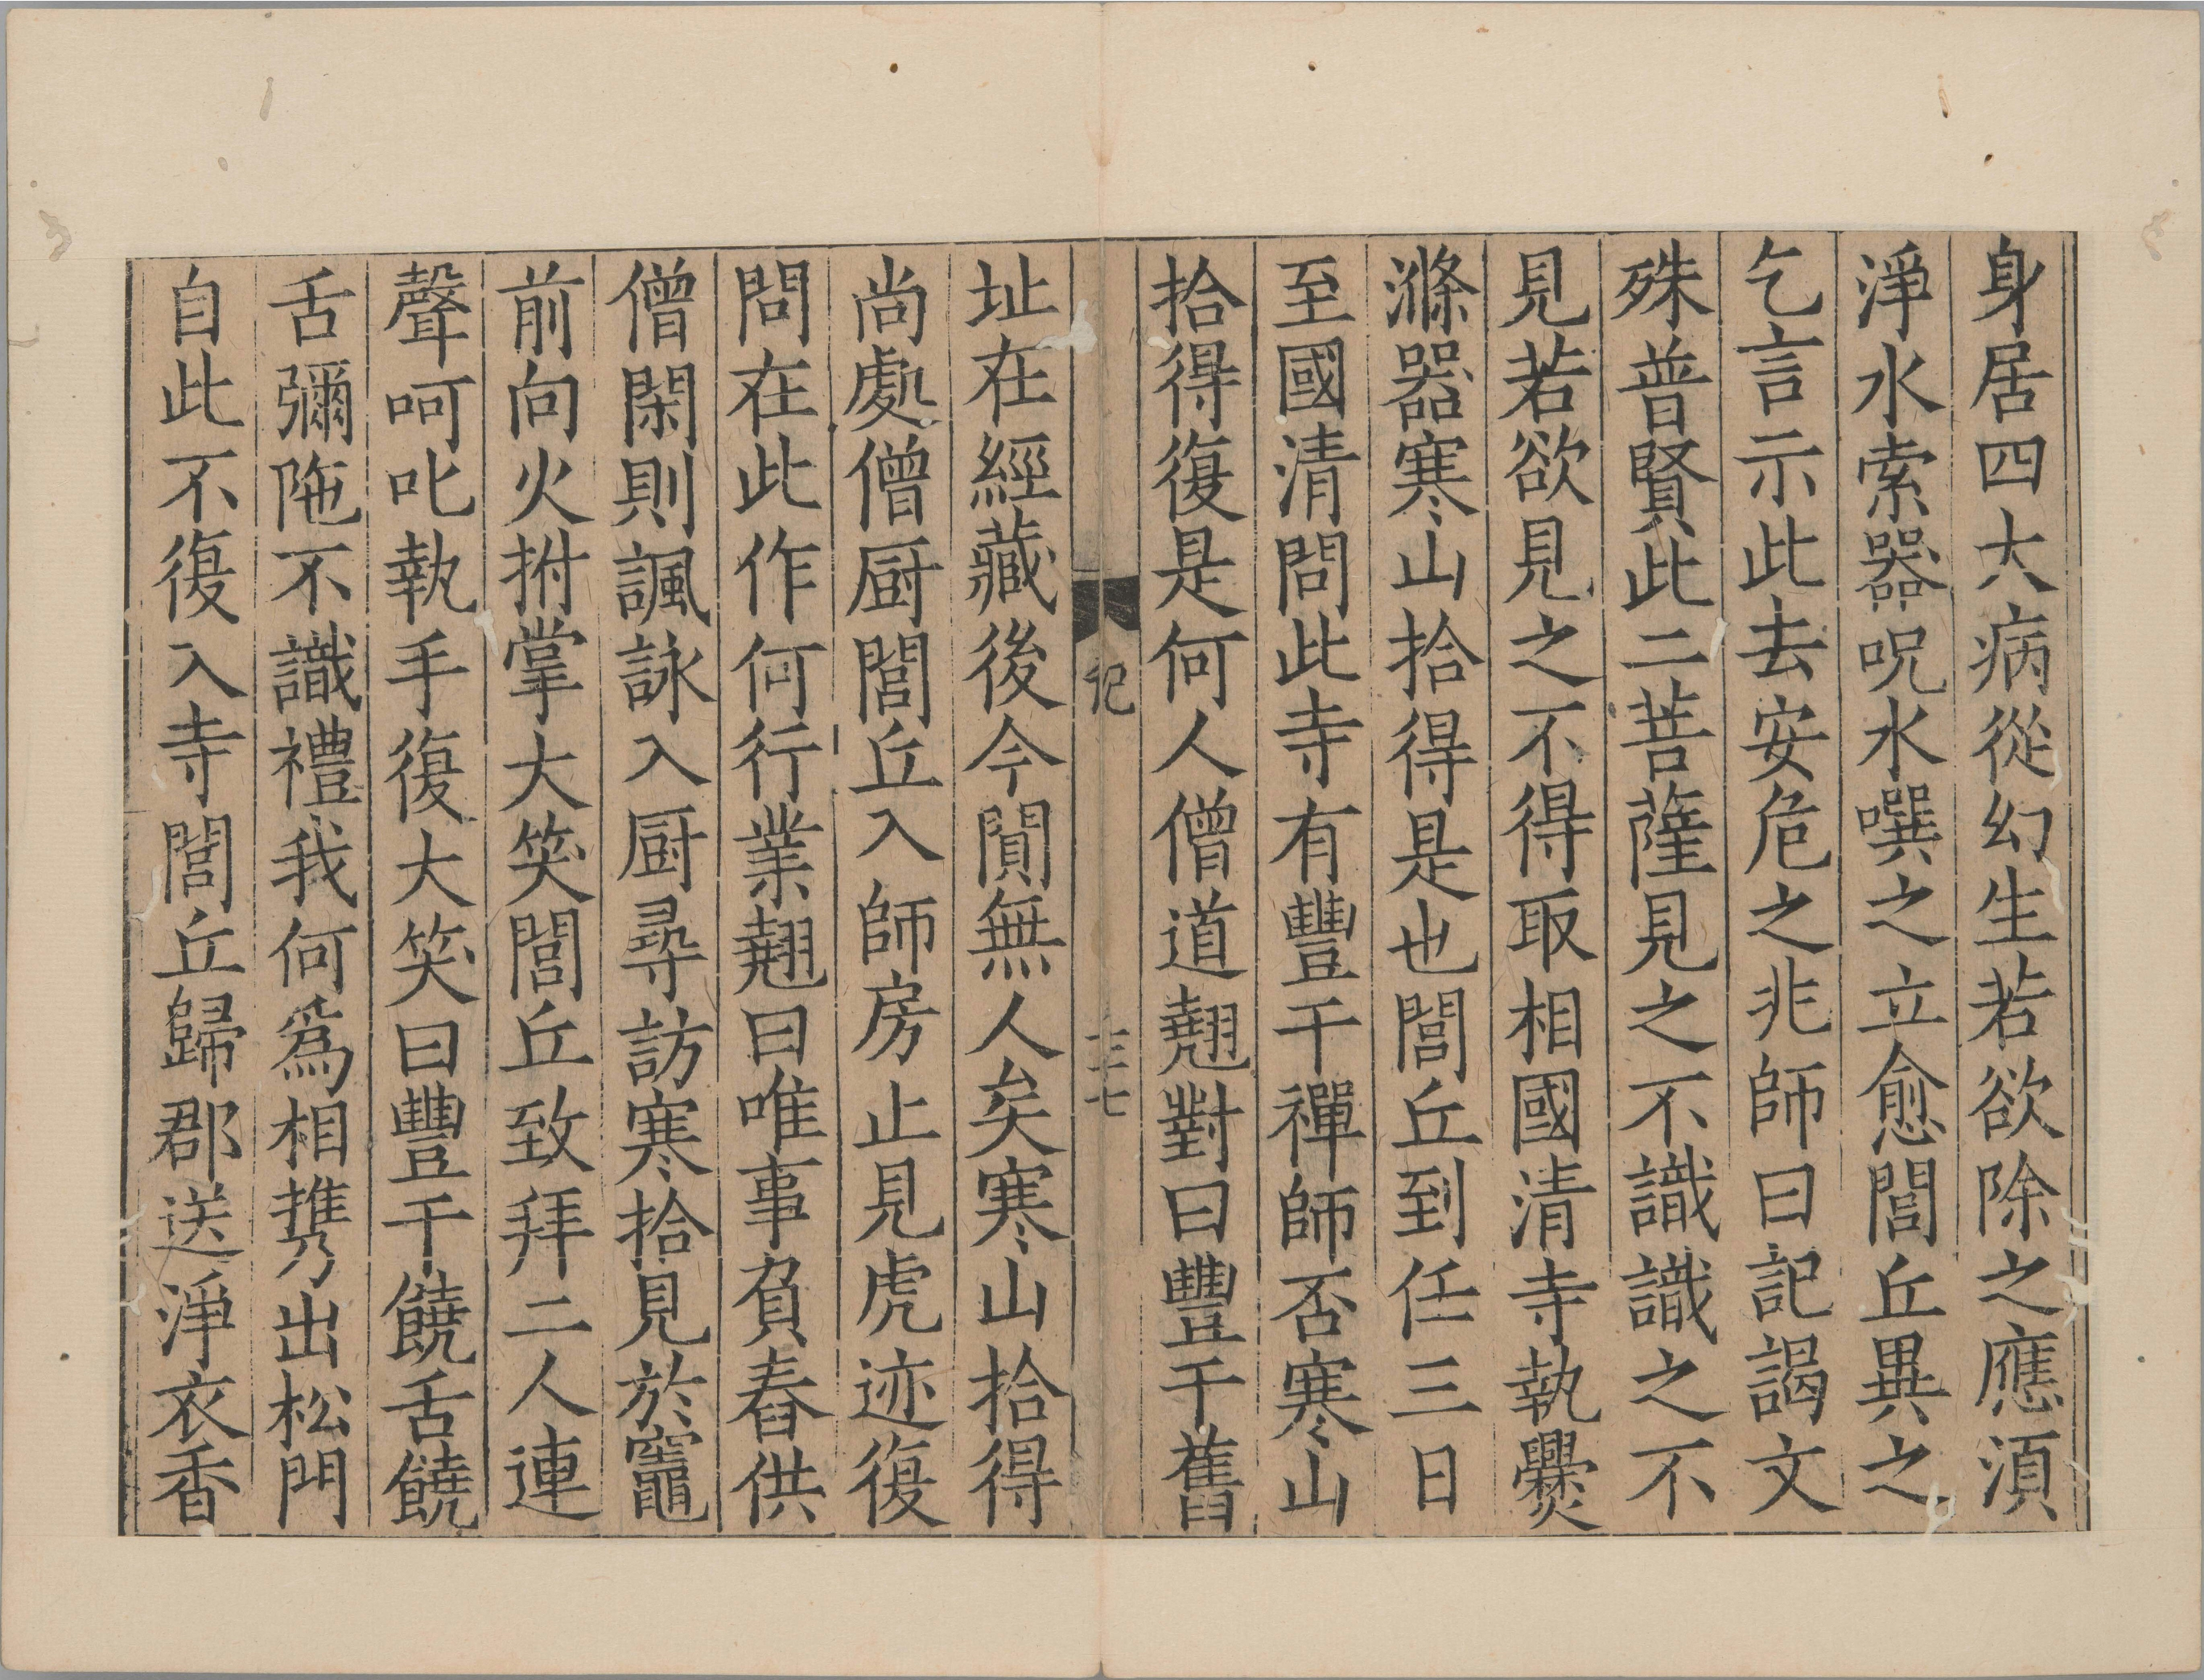 身居四大病從幻生若欲除之應須
淨水索器呪水噀之立愈閭丘異之
乞言示此去安危之兆師曰記謁文
殊普賢此二菩薩見之不識識之不
見若欲見之不得取相國清寺執爨
滌器寒山拾得是也閭丘到任三日
至國清問此寺有豐干禪師否寒山
拾得復是何人僧道翹對曰豐干舊
记
三七
址在經藏後今閴無人矣寒山拾得
尚處僧厨閭丘入師房止見虎迹復
問在此作何行業翹曰唯事負舂供
僧閑則諷詠入厨尋訪寒拾見於竈
前向火拊掌大笑閭丘致拜二人連
聲呵叱執手復大笑曰豐干饒舌饒
舌彌陁不識禮我何爲相携出松門
自此不復入寺閭丘歸郡送淨衣香